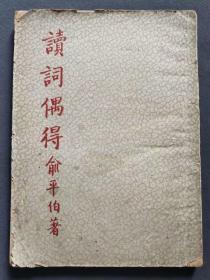 讀詞偶得
俞平伯著